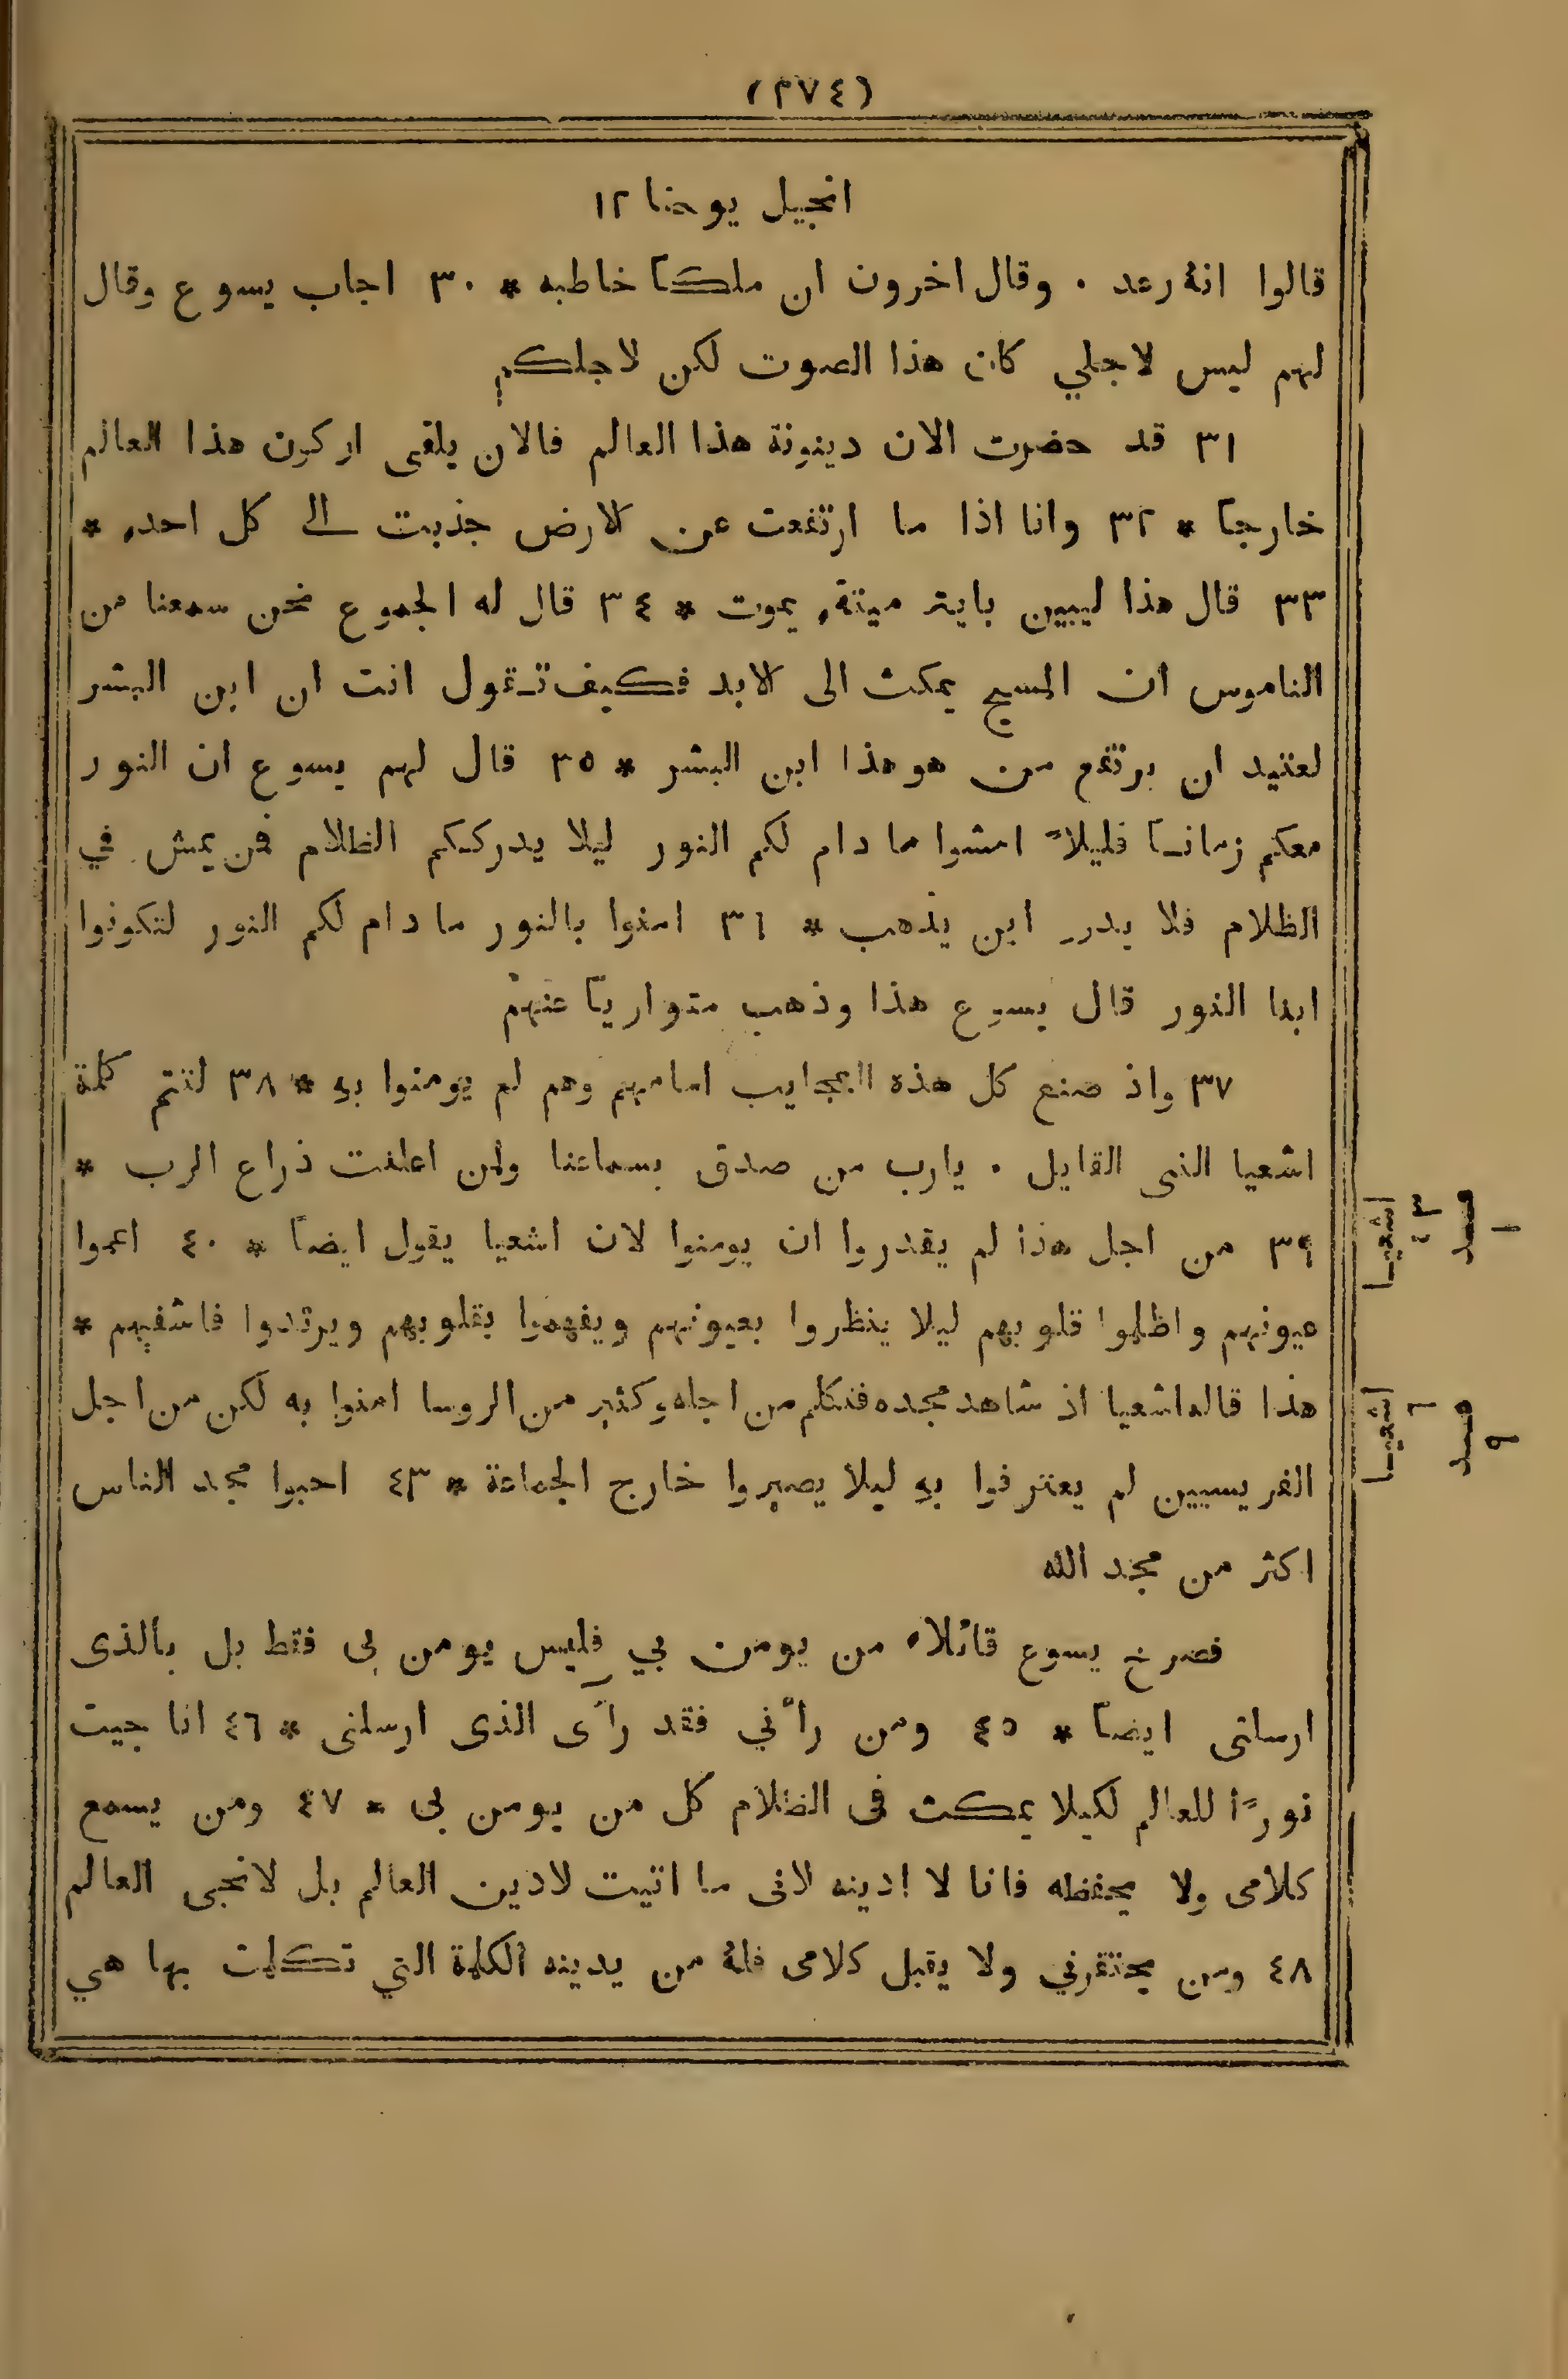 (٢٧٤)
انجيل يوحنا ١٢
قالوا انهٔ رعد . وقال اخرون ان ملكاً خاطبه * ٣٠ اجاب يسوع وقال
لهم ليس لاجلي كان هذا الصوت لكن لاجلكم
٣١ قد حضرت الان دينونة هذا العالم فالان يلقى اركون هذا العالم
خارجاً * ٣٢ وانا اذا ما ارتفعت عن الارض جذبت الى كل احد *
٣٣ قال هذا ليبين باية ميتة يموت * ٣٤ قال له الجموع نحن سمعنا من
الناموس ان المسيح يمكث الى الابد فكيف تقول انت ان ابن البشر
لعتيد ان يرتفع من هو هذا ابن البشر * ٣٥ قال لهم يسوع ان النور
معكم زماناً قليلاً امشوا ما دام لكم النور ليلا يدرككم الظلام فمن يمش في
الظلام فلا يدرى اين يذهب * ٣٦ امنوا بالنور ما دام لكم النور لتكونوا
ابنا النور قال يسوع هذا وذهب متوارياً عنهم
٣٧ واذ صنع كل هذه العجايب امامهم وهم لم يومنوا به * ٣٨ لتتم كلمة
اشعيا النبى القايل . يارب من صدق بسماعنا ولمن اعلنت ذراع الرب *
٣٩ من اجل هذا لم يقدروا ان يومنوا لان اشعيا يقول ايضاً * ٤٠ اعموا
عيونهم واظلموا قلوبهم ليلا ينظروا بعيونهم ويفهموا بقلوبهم ويرتدوا فاشفيهم *
هذا قاله اشعيا اذ شاهد مجده فتكلم من اجله وكثير من الروسا امنوا به لكن من اجل
الفريسيين لم يعترفوا به ليلا يصيروا خارج الجماعة * ٤٣ احبوا مجد الناس
اكثر من مجد الله
فصرخ يسوع قائلاً من يومن بي فليس يومن بى فقط بل بالذى
ارسلنى ايضاً * ٤٥ ومن رأني فقد رأى الذى ارسلنى * ٤٦ انا جيت
نوراً للعالم لكيلا يمكث فى الظلام كل من يومن بى * ٤٧ ومن يسمع
كلامى ولا يحفظه فانا لا ادينه لانى ما اتيت لادين العالم بل لانجى العالم
٤٨ ومن يحتقرني ولا يقبل كلامى فلهٔ من يدينه الكلمة التي تكلمت بها هي
اشعيا
٥٣
١
اشعيا
٦
٩